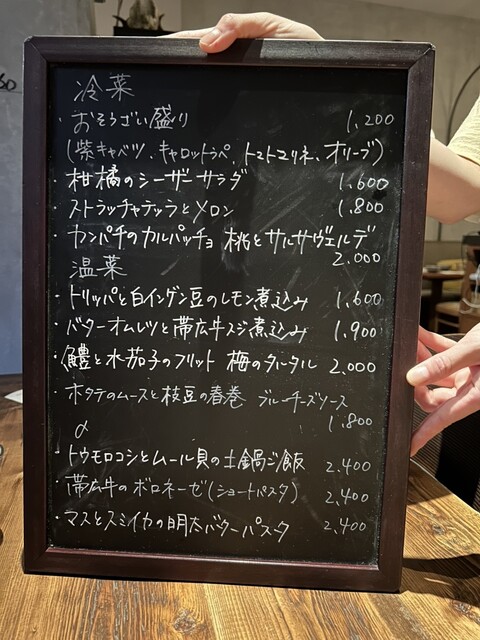 冷菜
・おそうざい盛り 1,200
(紫キャベツ、キャロットラペ、トマトマリネ、オリーブ)
・柑橘のシーザーサラダ 1,600
・ストラッチャテッラとメロン 1,800
・カンパチのカルパッチョ 桃とサルサヴェルデ
2,000
温菜
・トリッパと白インゲン豆のレモン煮込み 1,600
・バターオムレツと帯広牛スジ煮込み 1,900
・鱧と水茄子のフリット 梅のタルタル 2,000
・ホタテのムースと枝豆の春巻 ブルーチーズソース
1,800
α
・トウモロコシとムール貝の土鍋ご飯 2,400
・帯広牛のボロネーゼ(ショートパスタ) 2,400
・マスとスミイカの明太バターパスタ 2,400